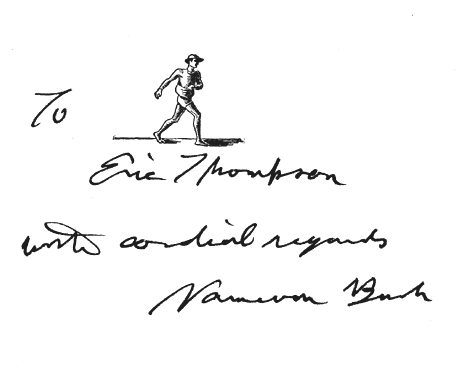 To
Eric Thompson
with cordial regards
Vannevar Bush